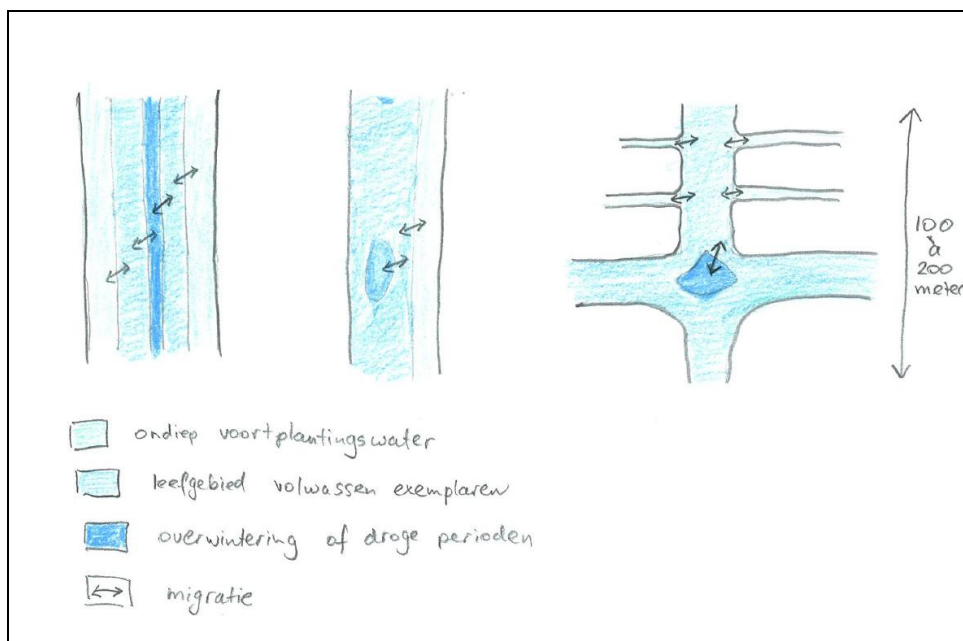 100
à
200
meter
ondiep voortplantingswater
leefgebied volwassen exemplaren
overwintering of droge perioden
migratie